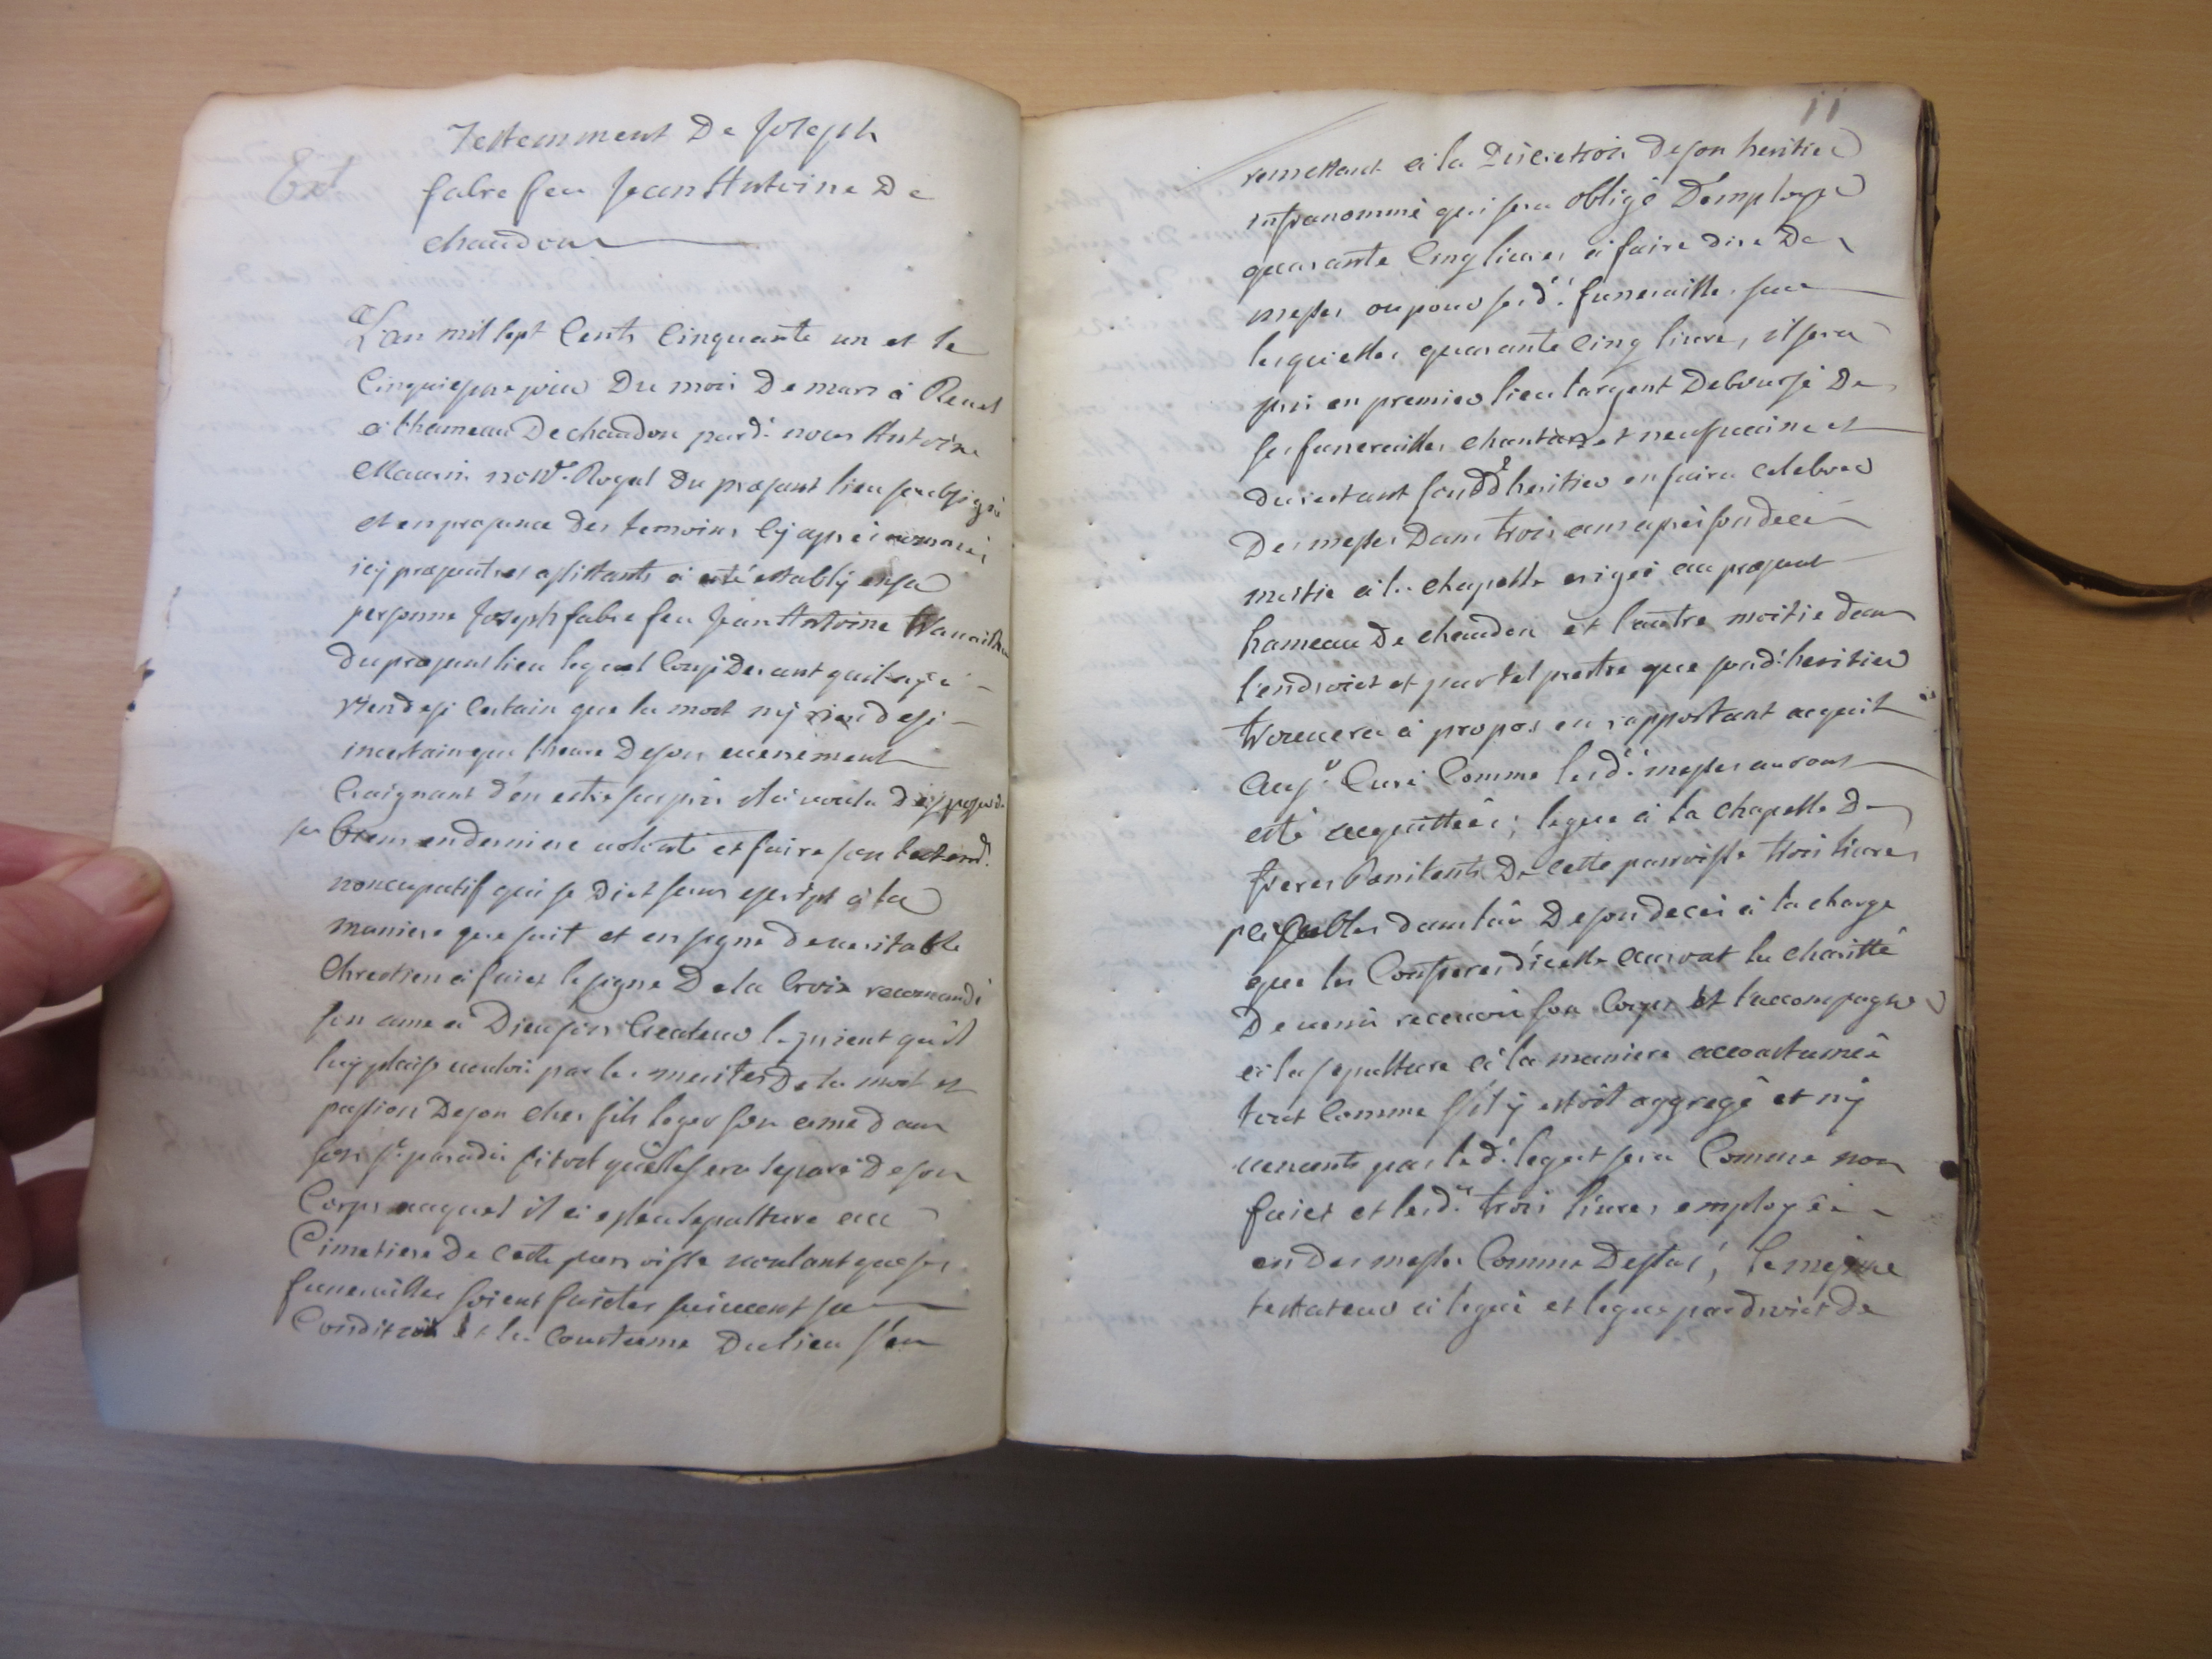 Testemment De Joseph
Ext fabre feu Jean Antoine De
chaudon
L'an mil sept Cents Cinquante un et le
Cinquiesme jour Du mois De mars à Revel
a lhameau De chaudon pard.t nous Antoine
Maurin not.re Royal du present lieu soubsigné
et en presence des temoins cy apres nommés
icy presents et assistants a esté estably en sa
personne Joseph fabre feu Jean Antoine travailleur
du present lieu lequel Considerant quil ny a
rien de si Certain que la mort ny rien de si
incertain que l'heure De son evenement
Craignant d'en estre surpris il a voulu Disposer de
ses biens en derniere volonté et faire son testemt.
noncupatif qui se Dict sans escript a la
maniere que suit et en signe De veritable
Chrestien a faict le signe De la Croix recomandé
son ame a Dieu son Createur le priant qu'il
luy plaise vouloir par les merites De la mort et
passion De son cher fils loger son ame dans
son st. paradis sitost qu'elle sera separé De son
Corps auquel il a esleu sepulture au
Cimetiere De cette parroisse voulant que ses
funerailles soient faictes suivant sa
Condition et la Coustume Du lieu s'en
11
remettant a la Discretion De son heritier
infranommé qui sera obligé D'employer
quarante Cinq livres a faire dire Des
messes ou pour sesd. funerailles sur
lesquelles quarante Cinq livres, il sera
pris en premier lieu l'argent Deboursé De
ses funerailles chantars et neufvaine et
du restant sond. heritier en faira celebrer
Des messes Dans trois ans apres son deces
moitie a la chapelle erigée au present
hameau De chaudon et l'autre moitie dans
l'endroict et par tel prestre que sond. heritier
trouvera a propos en rapportant acquit
au sr. Curé Comme lesd. messes auront
esté acquittées; legue a la chapelle Des
freres Penitents De cette parroisse trois livres
payables dans l'an De son deces a la charge
que les Confreres d'icelle auront la charitté
De venir recevoir son Corps et l'accompagner
a la sepulture a la maniere accoutumée
tout Comme s'il y estoit aggregé et ny
venants pas led. legat sera Comme non
faict et lesd. trois livres employées
en des messes Comme Dessus; le mesme
testateur a legué et legue par droict de